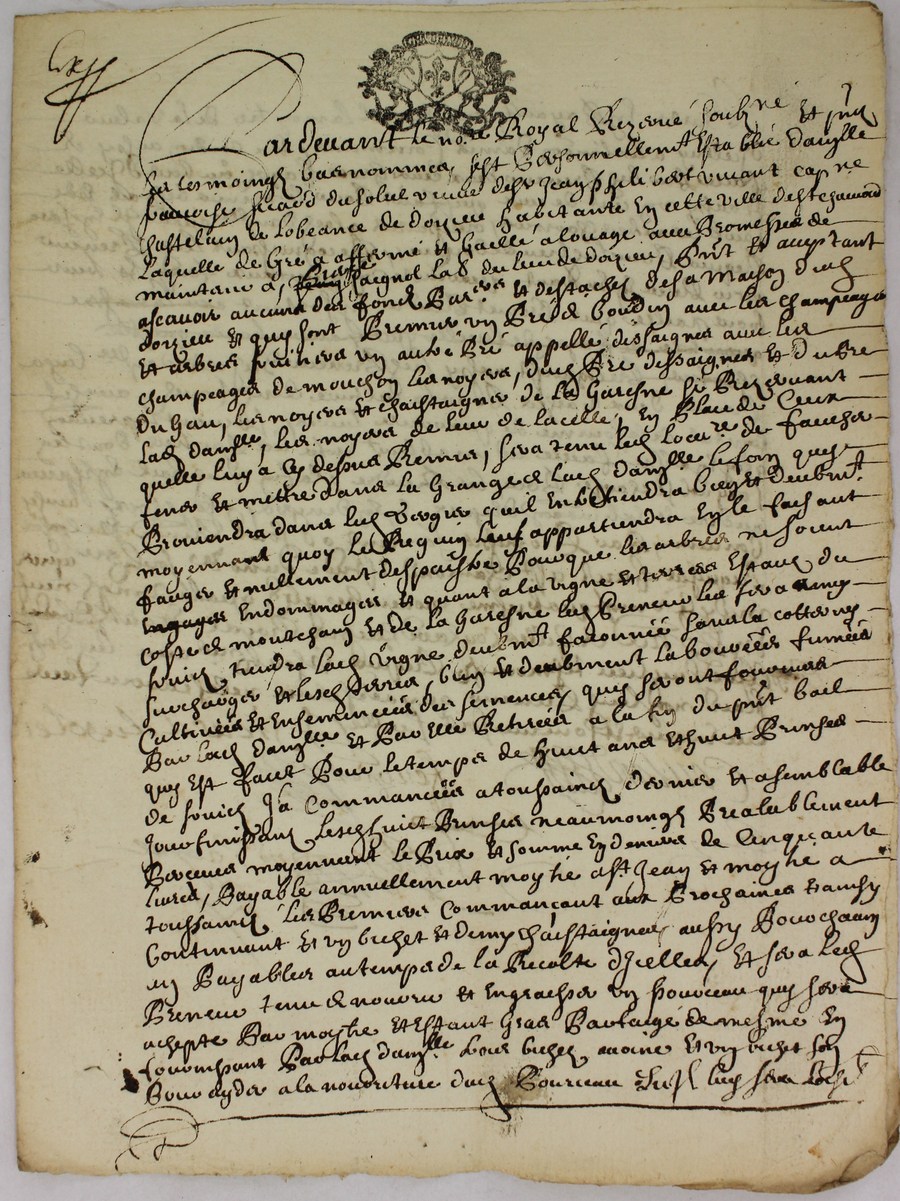 Expp
Pardevant le no.re Royal Rezervé soubz.né et pñts
les tesmoingts bas nommez, s'est personnellem.t establie dam.lle
françoise Sicard du Soleil veufve de sr Jean Philibert vivant cap.ne
chastelain de lobeance de doizieu habitante en cette ville de St chamond
Laquelle de gré a affermé et baillé a louage avec promesses de
maintenir a, saignol lab.r du lieu de doizieu, pñt et acceptant
ascavoir aucuns des fonds et destachez de sa maison dud.
doizieu et quy sont premier un pré boudin avec les champeages
et arbres fruitiers un autre pré appellé dessaignes avec les
champeages de mouchon les noyers, dud. pré dessaignes et dupré
Du Gau, les noyers et chastaigners de la Garesne se Rezervant
Lad. dam.lle, les noyers de leur de lacelle, en place de Ceux
quelle luy a cy dessus Remis, sera tenu led. loca.re de faucher
fener et metre dans la grange de lad. dam.lle le foin quy
Proviendra dans led. verger quil entretiendra bien et deubm.t
moyennant quoy le Reguin luy appartiendra en le faisant
faucher et nullement despaistre Pour que les arbres ne soient
endommages et quant a la vigne et terres estant du
coste de montchain et de la Garesne led. Preneur les sera
tiendra lad. vigne deubm.t fasonnée sans la cotterny
surcharger et lesd. terres, bien et deubment labourées fumées
Cultivées et Ensemencées des semences, quy seront fournies
Par lad. dam.lle et Par elle Retirées a la fin du pñt bail
quy est fait Pour le temps de huict ans et huict Prinses
de fruicts ja commancées a toussainct dernier et a semblable
jour finissant lesd. huict Prinses neaumoingts Prealablement
Perceues moyennant le Prix et somme en deniers de Cinquante
livres, Payable annuellement moytié a st Jean et moytié a
toussainct les Premiers commançant aux Prochaines et ainsy
Continuant et un bichet et demy chastaignes, aussy Pour chacun
an Payables au temps de la Recolte d'icelles, et sera led.
Preneur tenu de nourrir et engraisser un Pourceau quy sera
achepté Par moytié et estant gras Partaigé de mesme en
fournissant Par lad. dam.lle bichet avoine et un bichet son
Pour ayder a la nourriture dud. Pourceau luy sera